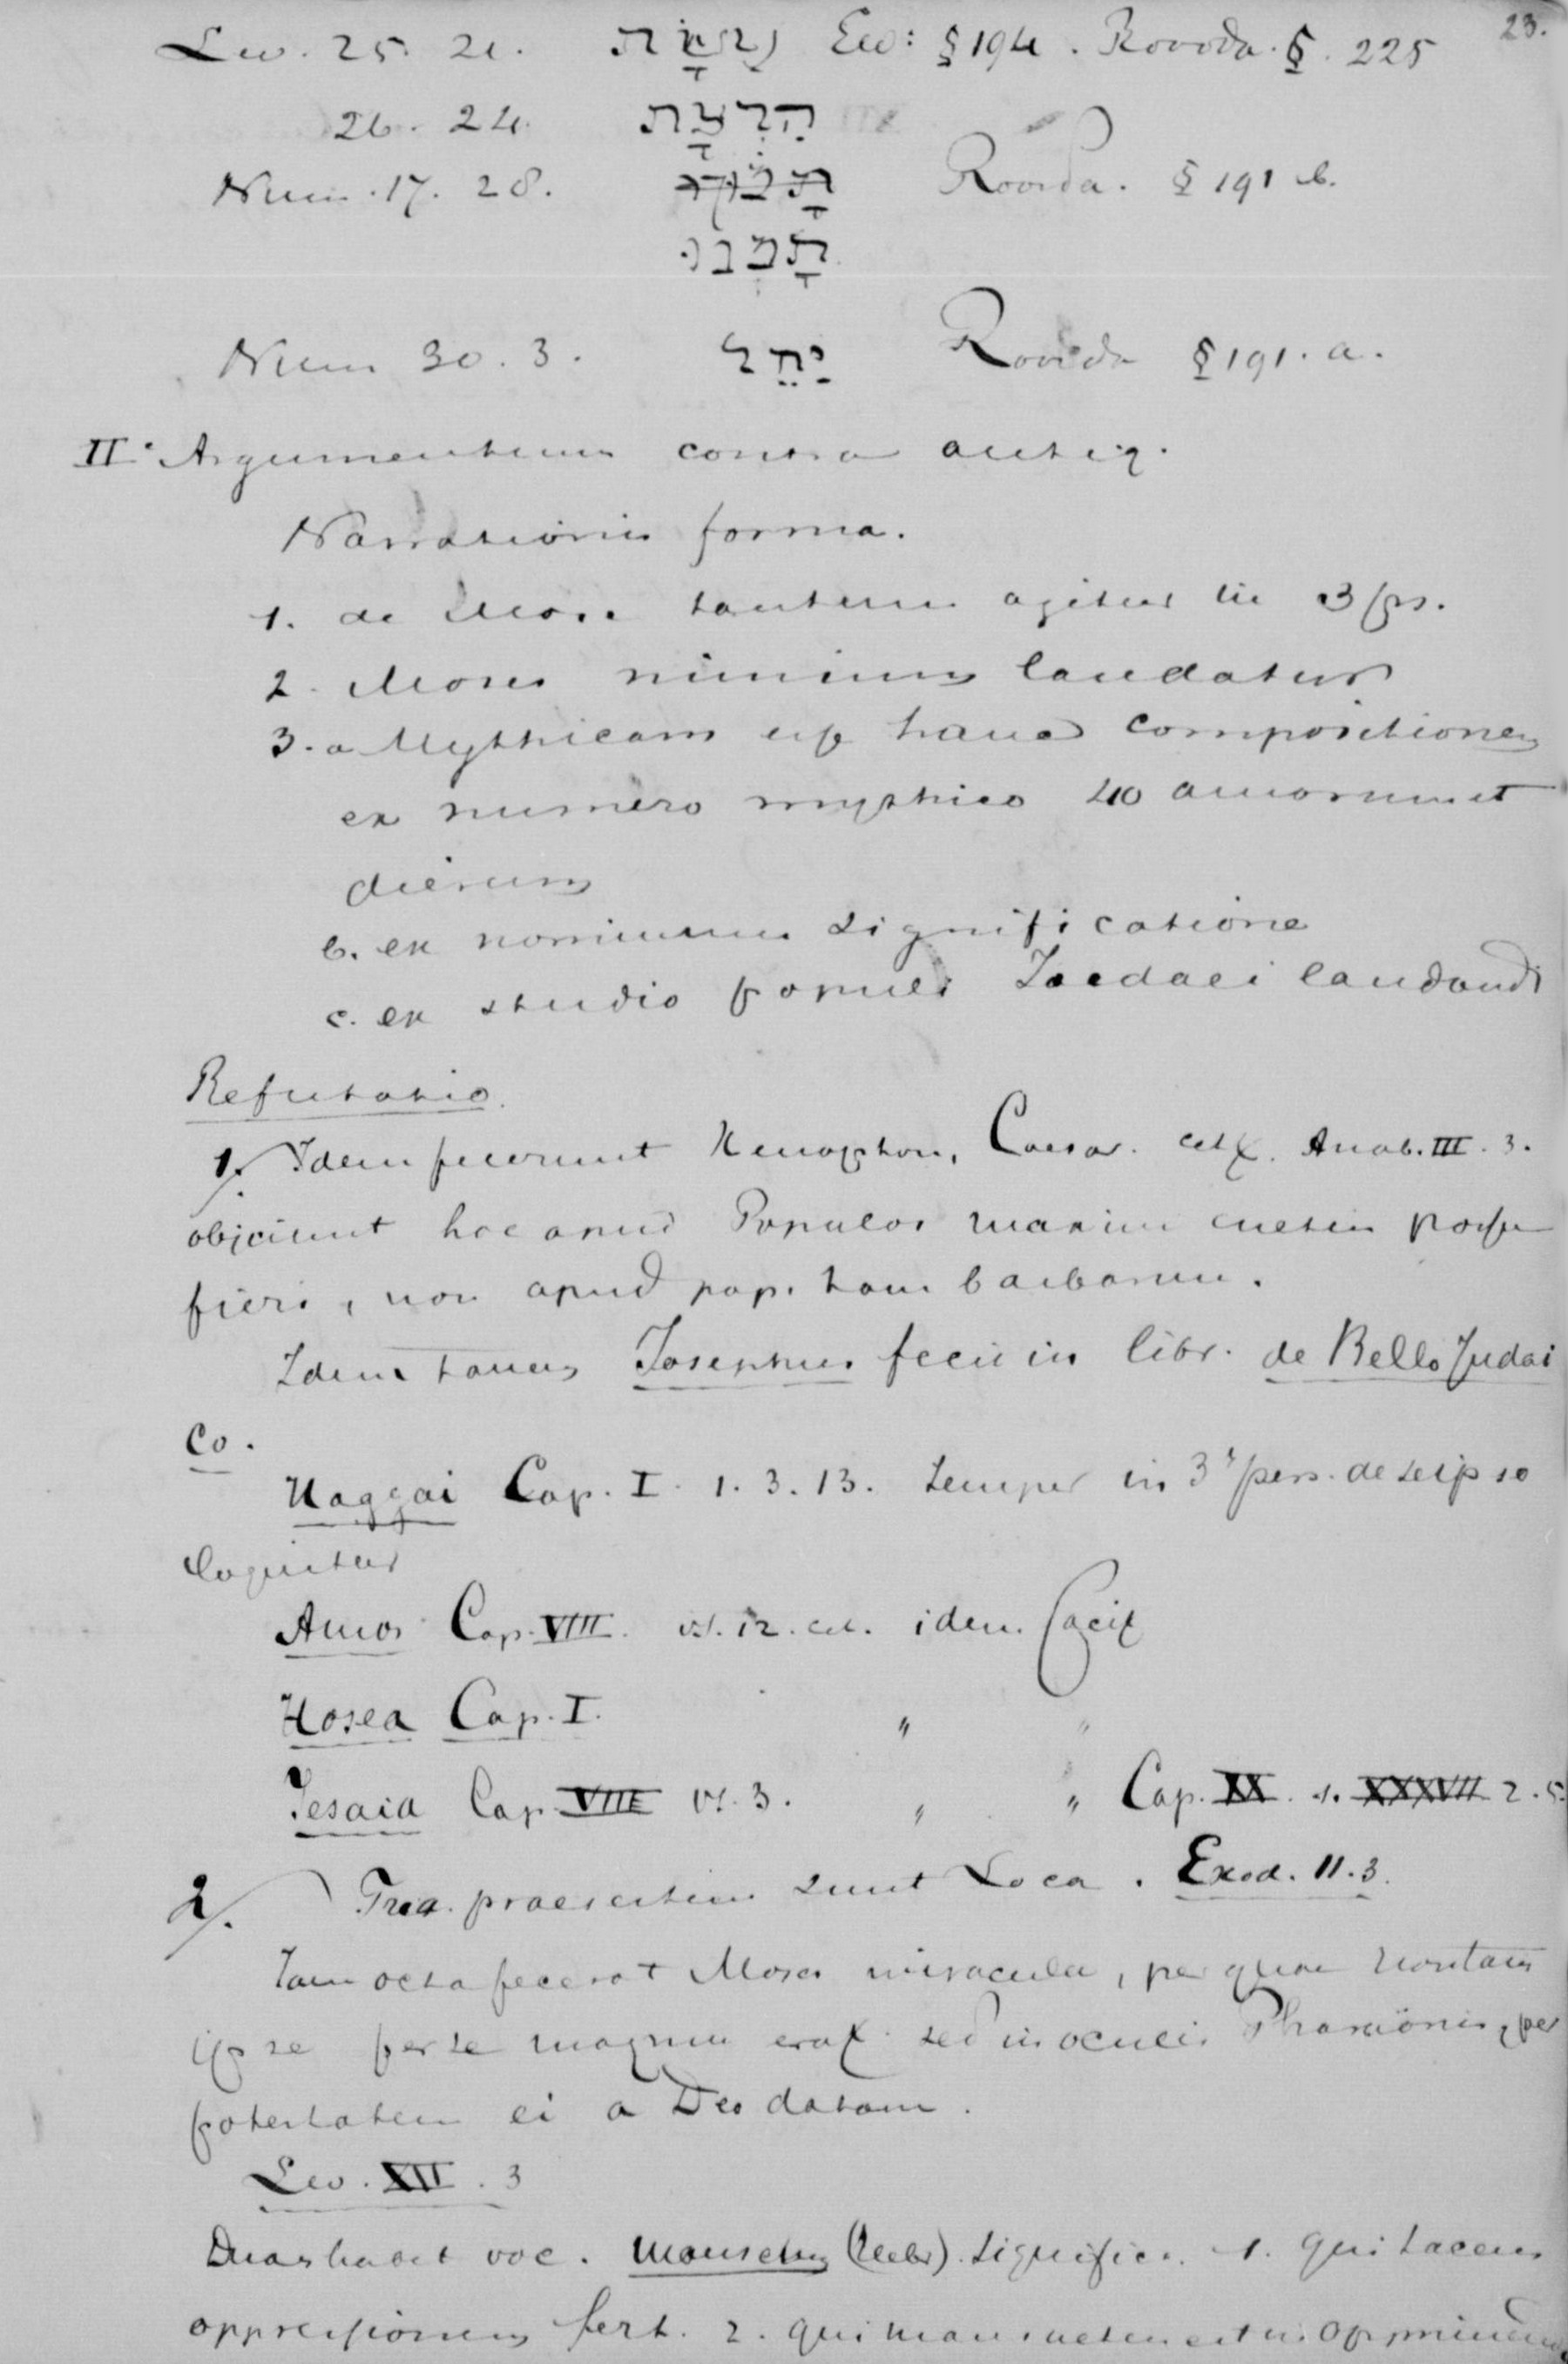 23.
Lev. 25. 21. עָשָׂת Ew: § 194. Roorda. §. 225
26. 24. הִרְצָת
Num. 17. 28. Roorda. § 191 b.
תָמְבוּ
Num 30. 3. יַחֵל Roorda § 191. a.
II. Argumentum contra antiq.
Narrationis forma.
1. de Mose tantum agitur in 3 ps.
2. Moses nimium laudatur
3. a Mythicam esse hanc compositionem
ex numero mythico 40 annorum et
dierum
b. ex nominum significatione
c. ex studio populi Judaei laudandi
Refutatio.
1/. Idem fecerunt Xenophon, Caesar. cet. Anab. III. 3.
objiciunt hoc apud Populos maxim cultos posse
fieri, non apud pop. tam barbarum.
Idem tamen Josephus fecit in libr. de Bello Judai
co.
Haggai Cap. I. 1. 3. 13. semper in 3 pers. de se ipso
loquitur
Amos Cap. VIII. vs. 12. cet. idem facit
Hosea Cap. I. " "
Jesaia Cap. VIII vs. 3. " " Cap. XX. 1. XXXVII 2. 5.
2/. Tria praesertim sunt Loca. Exod. 11. 3.
Jam octo fecerat Moses miracula, per quae non tam
ipse per se magnus erat sed in oculis Pharaönis, per
potestatem ei a Deo datam.
Lev. XII. 3
Duas habet voc. mansuetus (Hebr). signific. 1. qui tacens
oppressionem fert. 2. qui mansuetus est in opprimendo